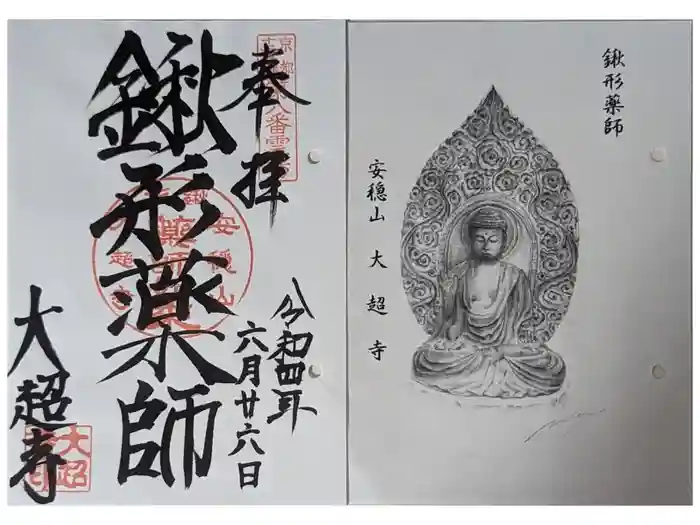 奉拝
鍬形薬師
令和四年
六月廿六日
大超寺
鍬形薬師
安穏山 大超寺